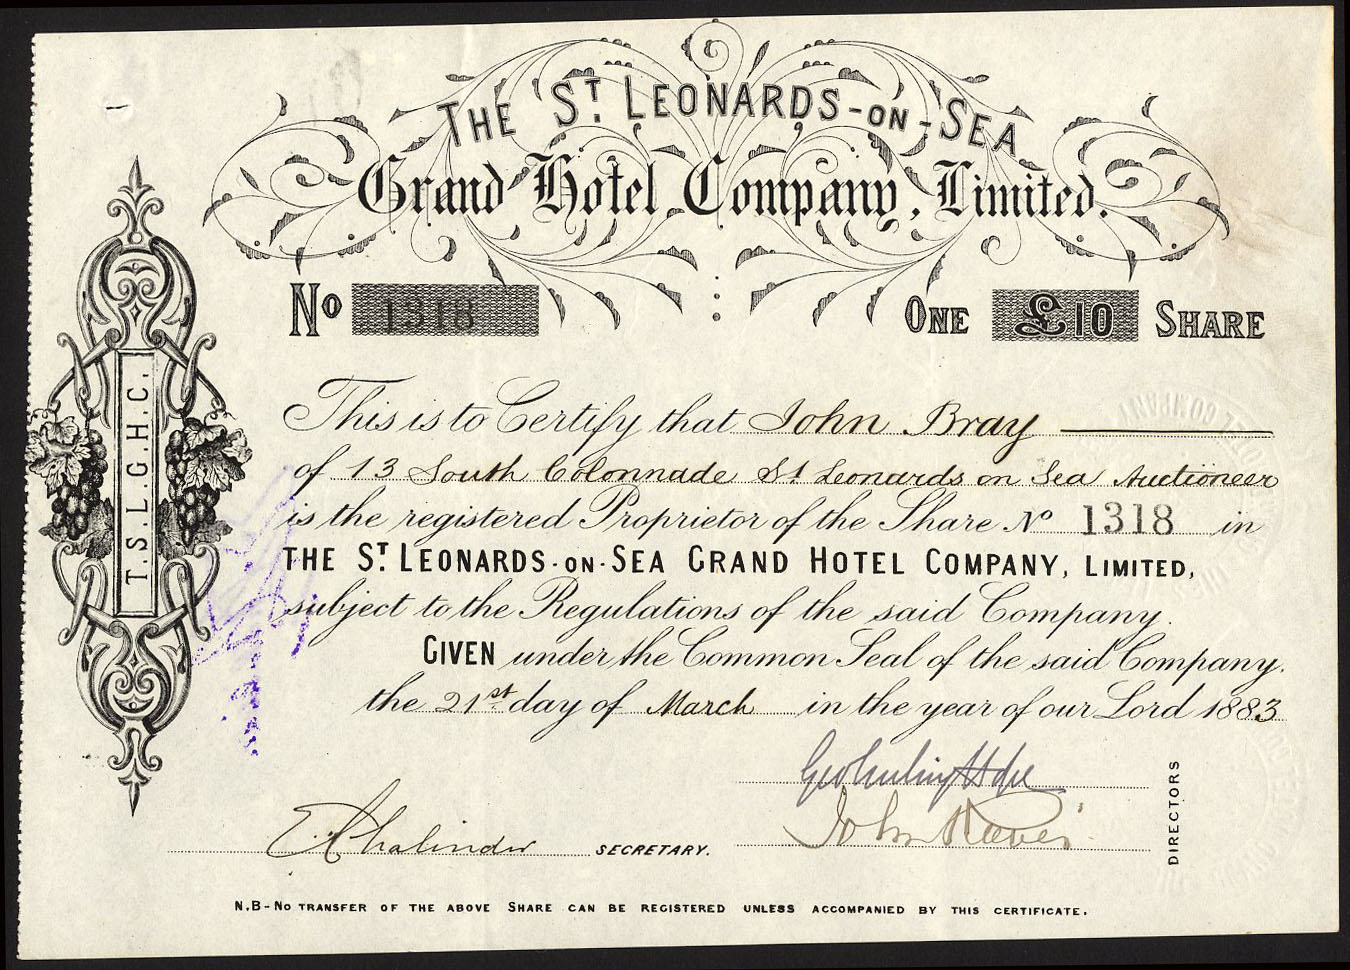 THE ST. LEONARDS-ON-SEA
Grand Hotel Company, Limited.
No 1318
ONE £10 SHARE
T.S.L.G.H.C.
This is to Certify that John Bray
of 13 South Colonnade St Leonards on Sea Auctioneer
is the registered Proprietor of the Share No 1318 in
THE ST. LEONARDS-ON-SEA GRAND HOTEL COMPANY, LIMITED,
subject to the Regulations of the said Company.
GIVEN under the Common Seal of the said Company.
the 21st day of March in the year of our Lord 1883
John
DIRECTORS
SECRETARY.
N.B-NO TRANSFER OF THE ABOVE SHARE CAN BE REGISTERED UNLESS ACCOMPANIED BY THIS CERTIFICATE.